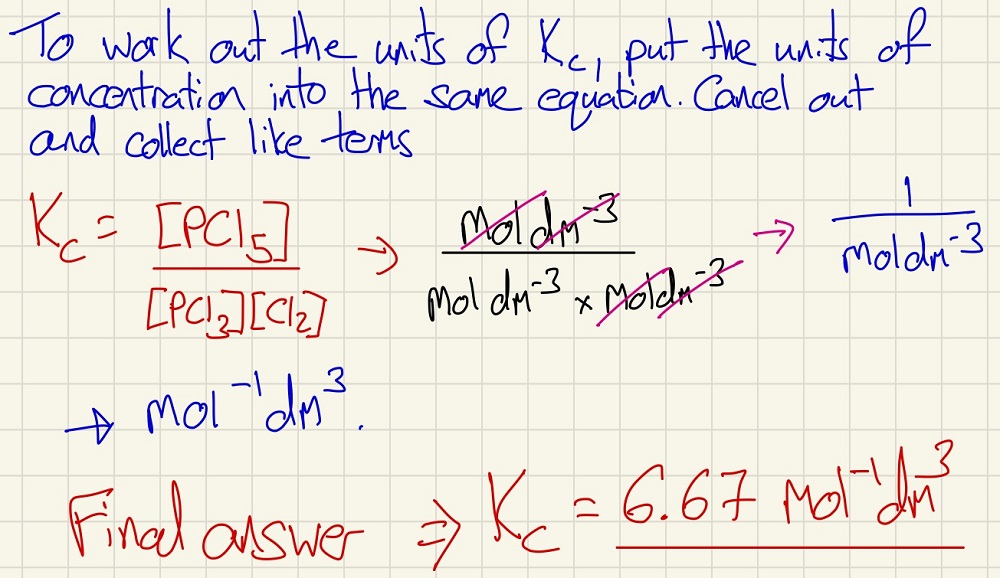 To work out the units of Kc, put the units of
concentration into the same equation. Cancel out
and collect like terms
Kc = [PCl5] / [PCl3][Cl2] → mol dm⁻³ / mol dm⁻³ × mol dm⁻³ → 1 / mol dm⁻³
→ mol⁻¹ dm³.
Final answer ⇒ Kc = 6.67 mol⁻¹ dm³